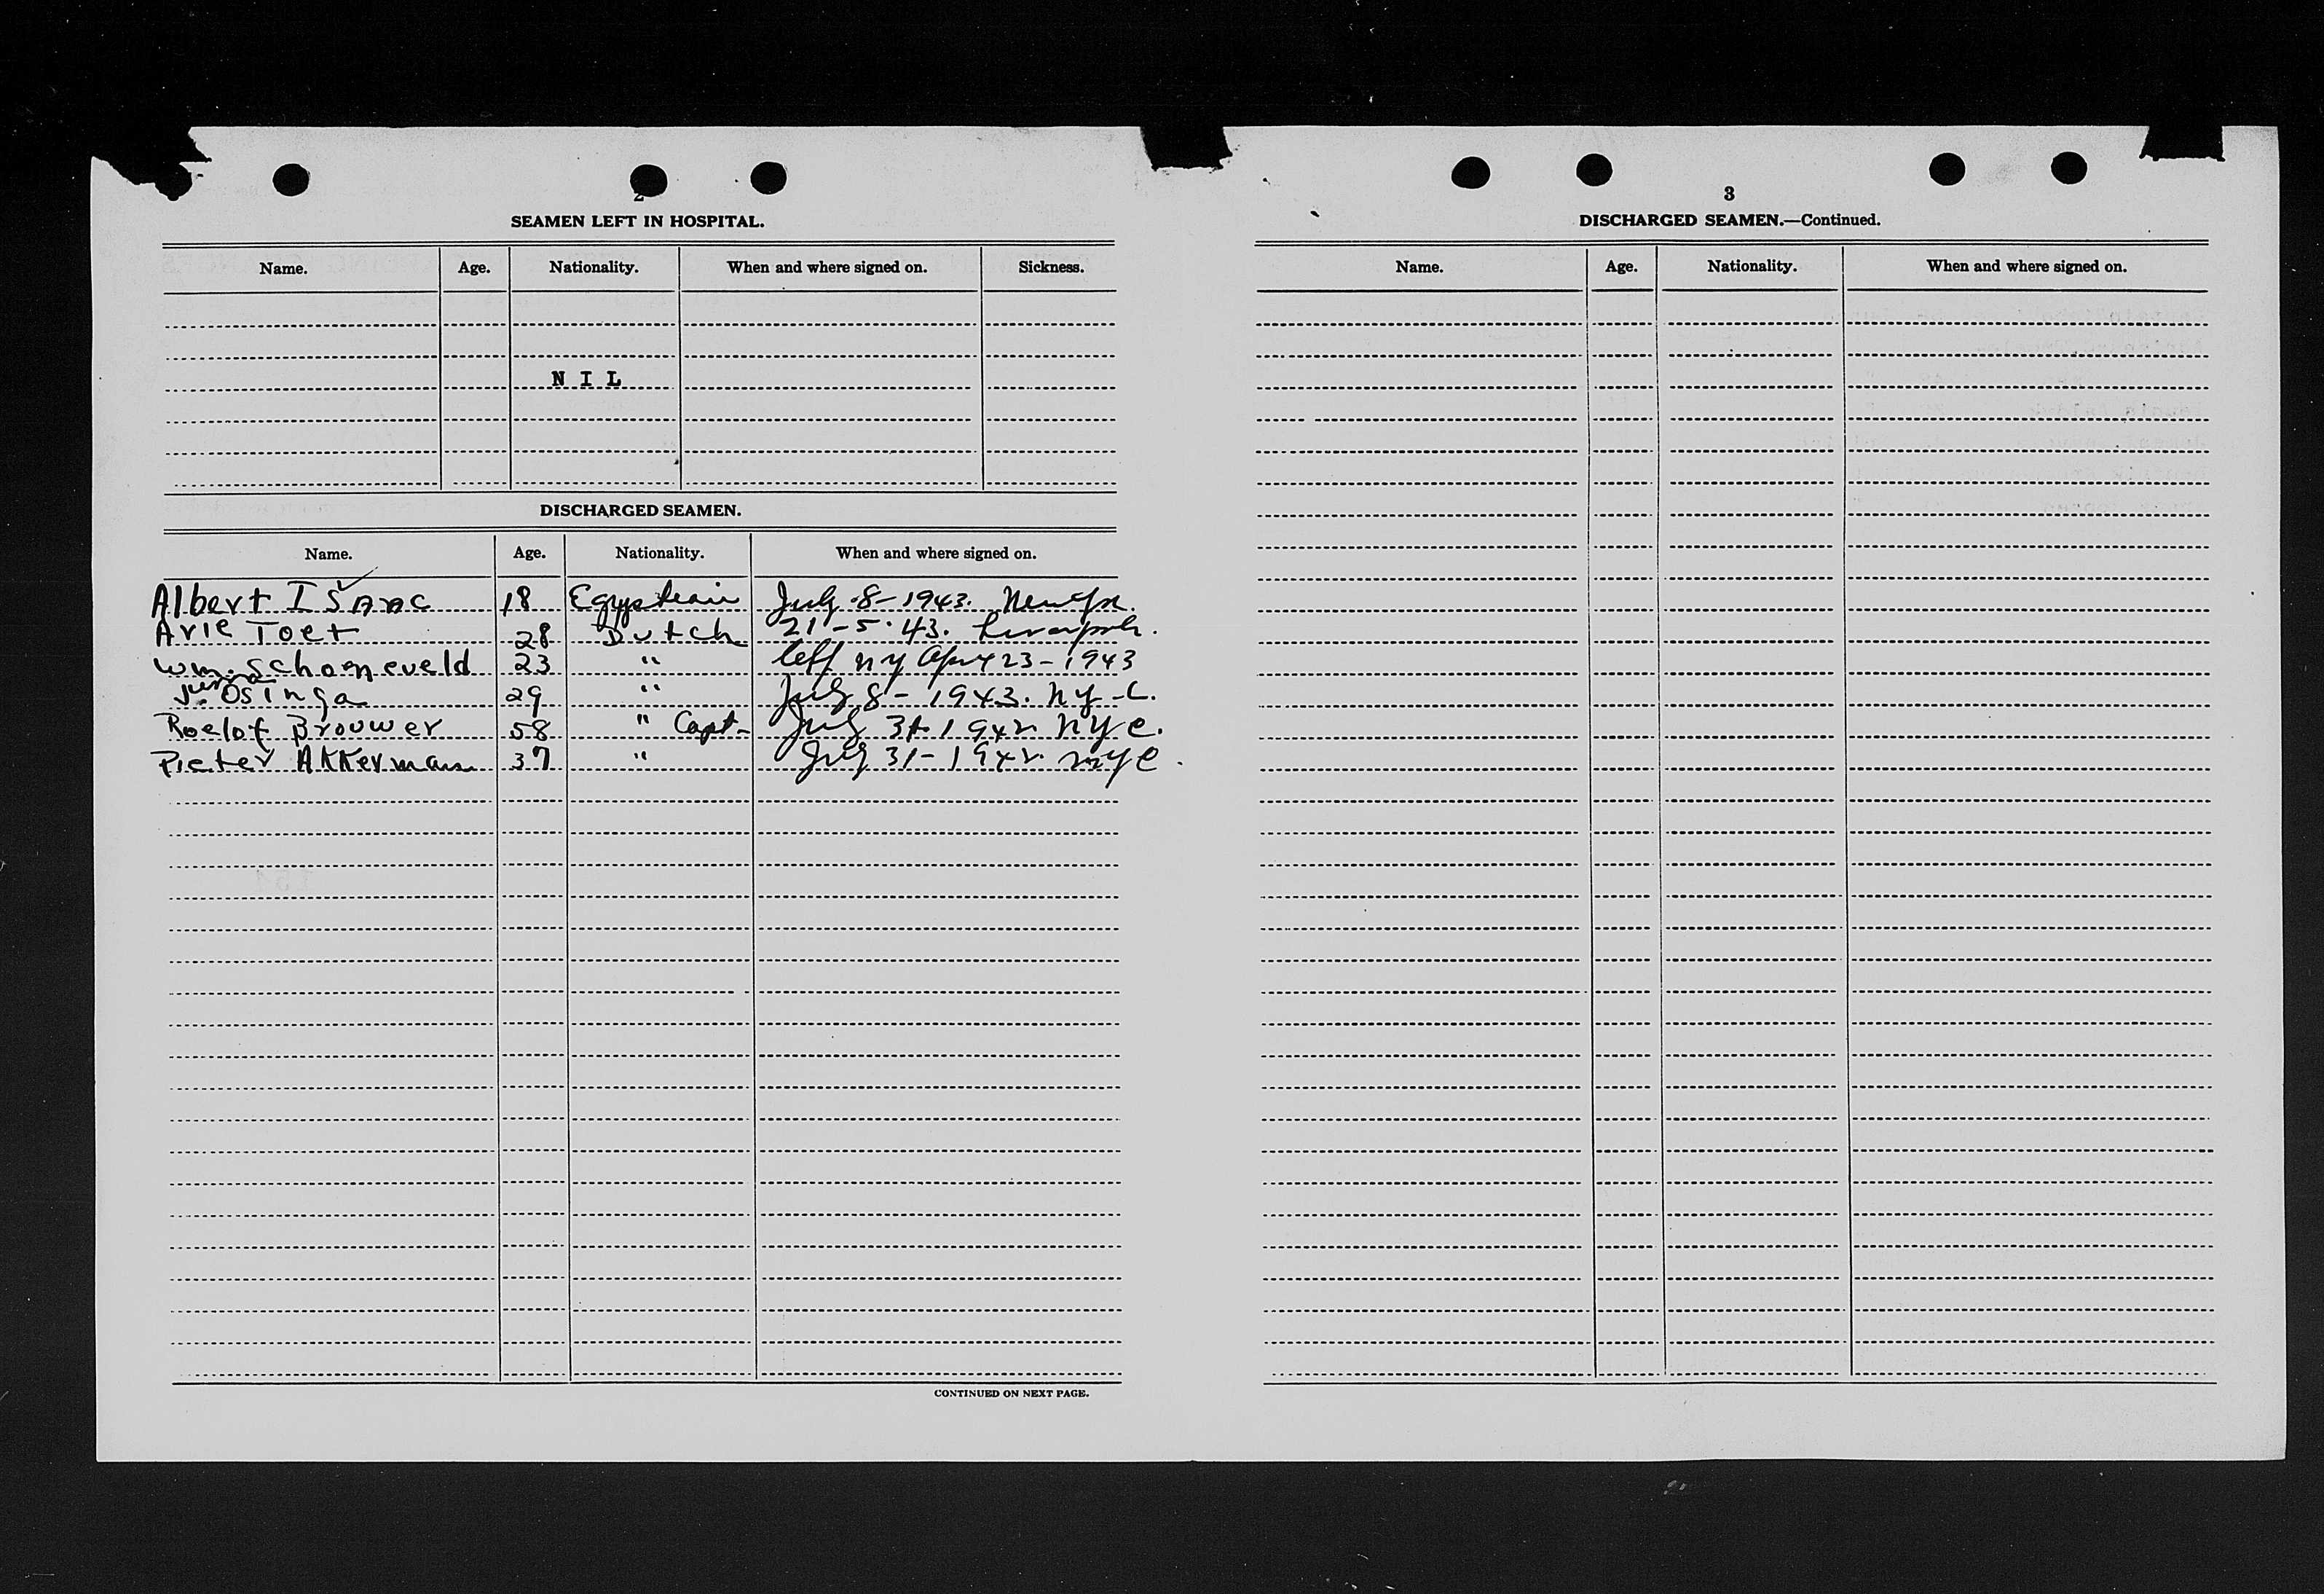 2
SEAMEN LEFT IN HOSPITAL.
Name. Age. Nationality. When and where signed on. Sickness.
N I L
DISCHARGED SEAMEN.
Name. Age. Nationality. When and where signed on.
Albert Isaac 18 Egyptian July -8- 1943.
Arie Toet 28 Dutch 21-5-43.
Wm. Schoeneveld 23 " left NY Apr 23-1943
Osinga 29 " July 8- 1943. NY-C.
Roelof Brouwer 58 " Capt- July 31 1942 NYC.
Pieter Akkerman 37 " July 31-1942 NYC.
CONTINUED ON NEXT PAGE.
3
DISCHARGED SEAMEN.—Continued.
Name. Age. Nationality. When and where signed on.